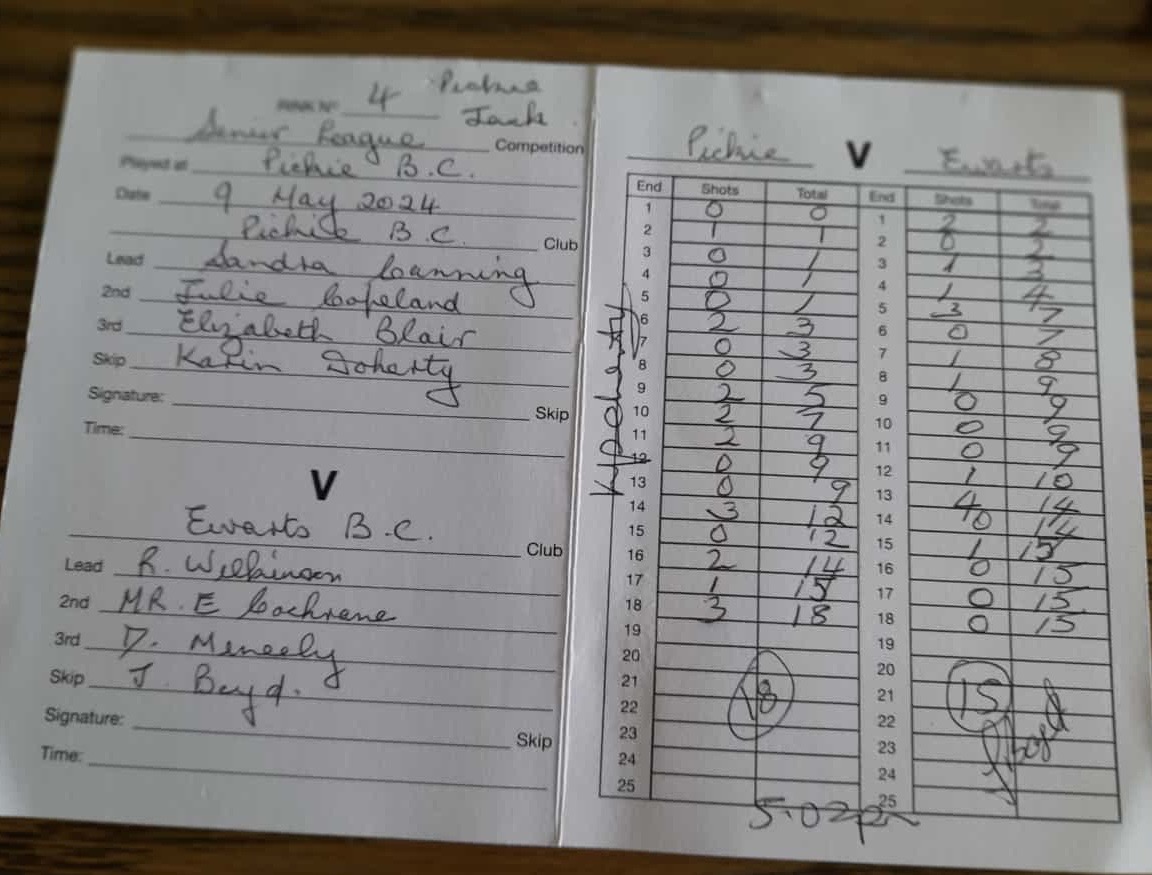 Pickie
RINK Nº 4 Jack
Senior League Competition
Played at Pickie B.C.
Date 9 May 2024
Pickie B.C. Club
Lead Sandra Canning
2nd Julie Copeland
3rd Elizabeth Blair
Skip Karin Doherty
Signature: Skip
Time:
V
Ewarts B.C. Club
Lead R. Wilkinson
2nd MR. E Cochrane
3rd D. Meneely
Skip J. Boyd.
Signature: Skip
Time:
Pickie V Ewarts
End Shots Total End Shots Total
1 0 0 1 2 2
2 1 1 2 0 2
3 0 1 3 1 3
4 0 1 4 1 4
5 0 1 5 3 7
6 2 3 6 0 7
7 0 3 7 1 8
8 0 3 8 1 9
9 2 5 9 0 9
10 2 7 10 0 9
11 2 9 11 0 9
12 0 9 12 1 10
13 0 9 13 4 14
14 3 12 14 0 14
15 0 12 15 1 15
16 2 14 16 0 15
17 1 15 17 0 15
18 3 18 18 0 15
19 19
20 20
21 18 21 15
22 22
23 23
24 24
25 25
KDoherty
JBoyd
5.02pm